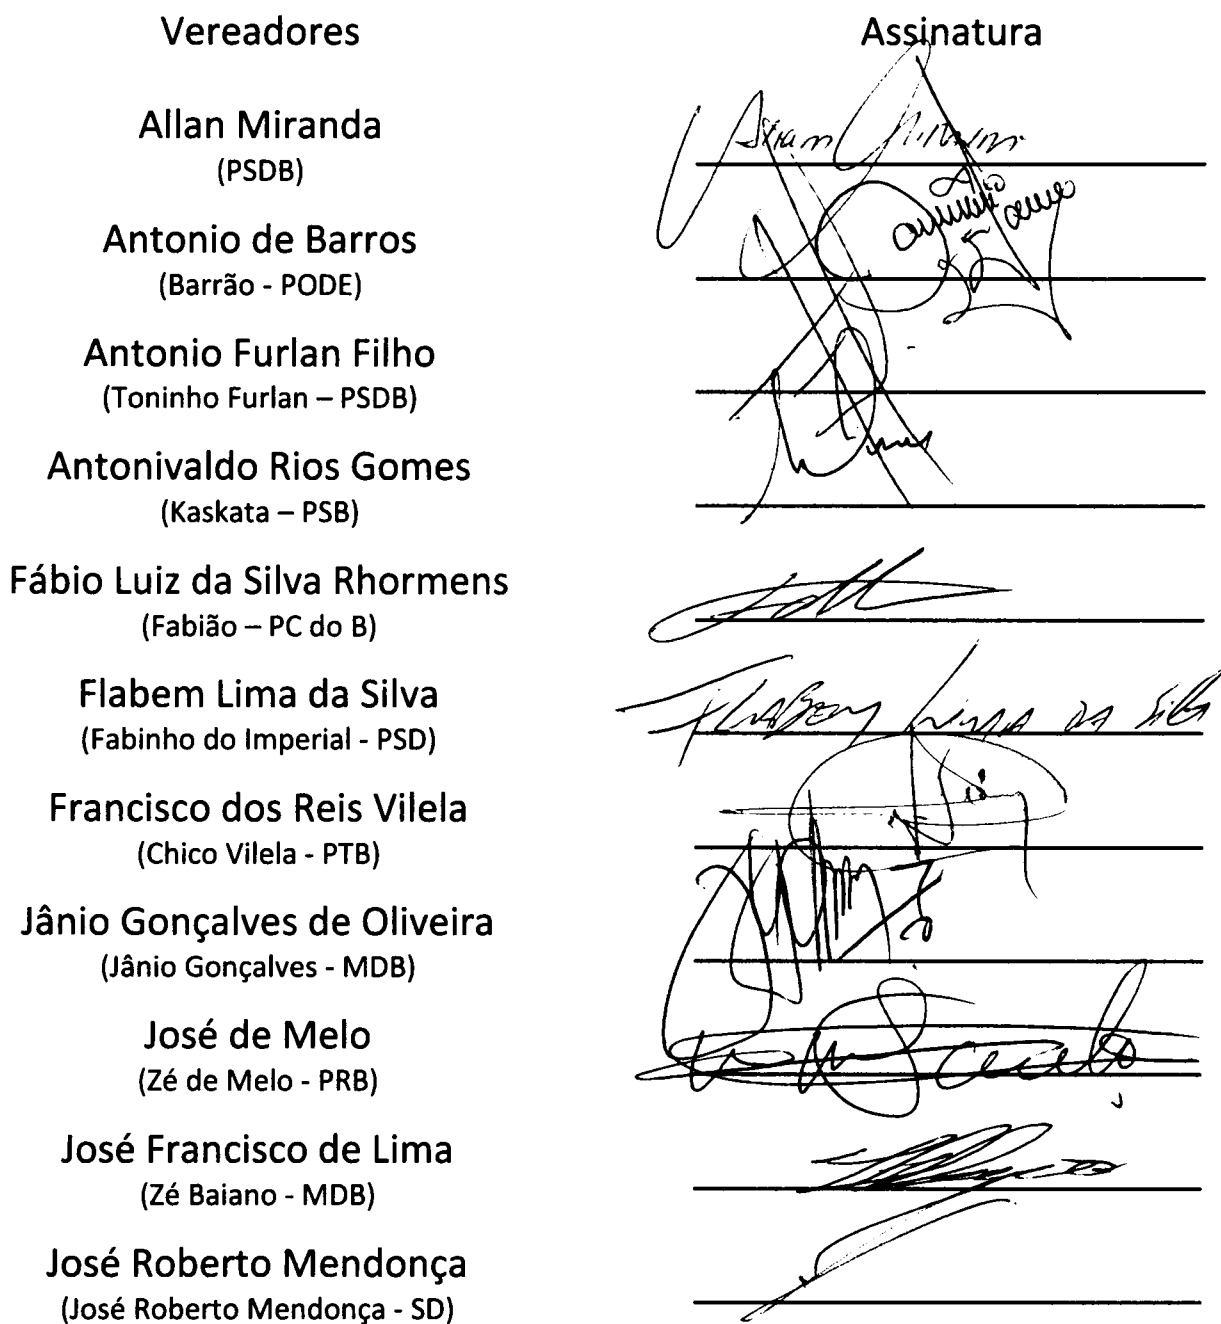 Vereadores Assinatura
Allan Miranda
(PSDB)
Antonio de Barros
(Barrão - PODE)
Antonio Furlan Filho
(Toninho Furlan – PSDB)
Antonivaldo Rios Gomes
(Kaskata – PSB)
Fábio Luiz da Silva Rhormens
(Fabião – PC do B)
Flabem Lima da Silva
Flabem Lima da Silva
(Fabinho do Imperial - PSD)
Francisco dos Reis Vilela
(Chico Vilela - PTB)
Jânio Gonçalves de Oliveira
(Jânio Gonçalves - MDB)
José de Melo
(Zé de Melo - PRB)
José Francisco de Lima
(Zé Baiano - MDB)
José Roberto Mendonça
(José Roberto Mendonça - SD)